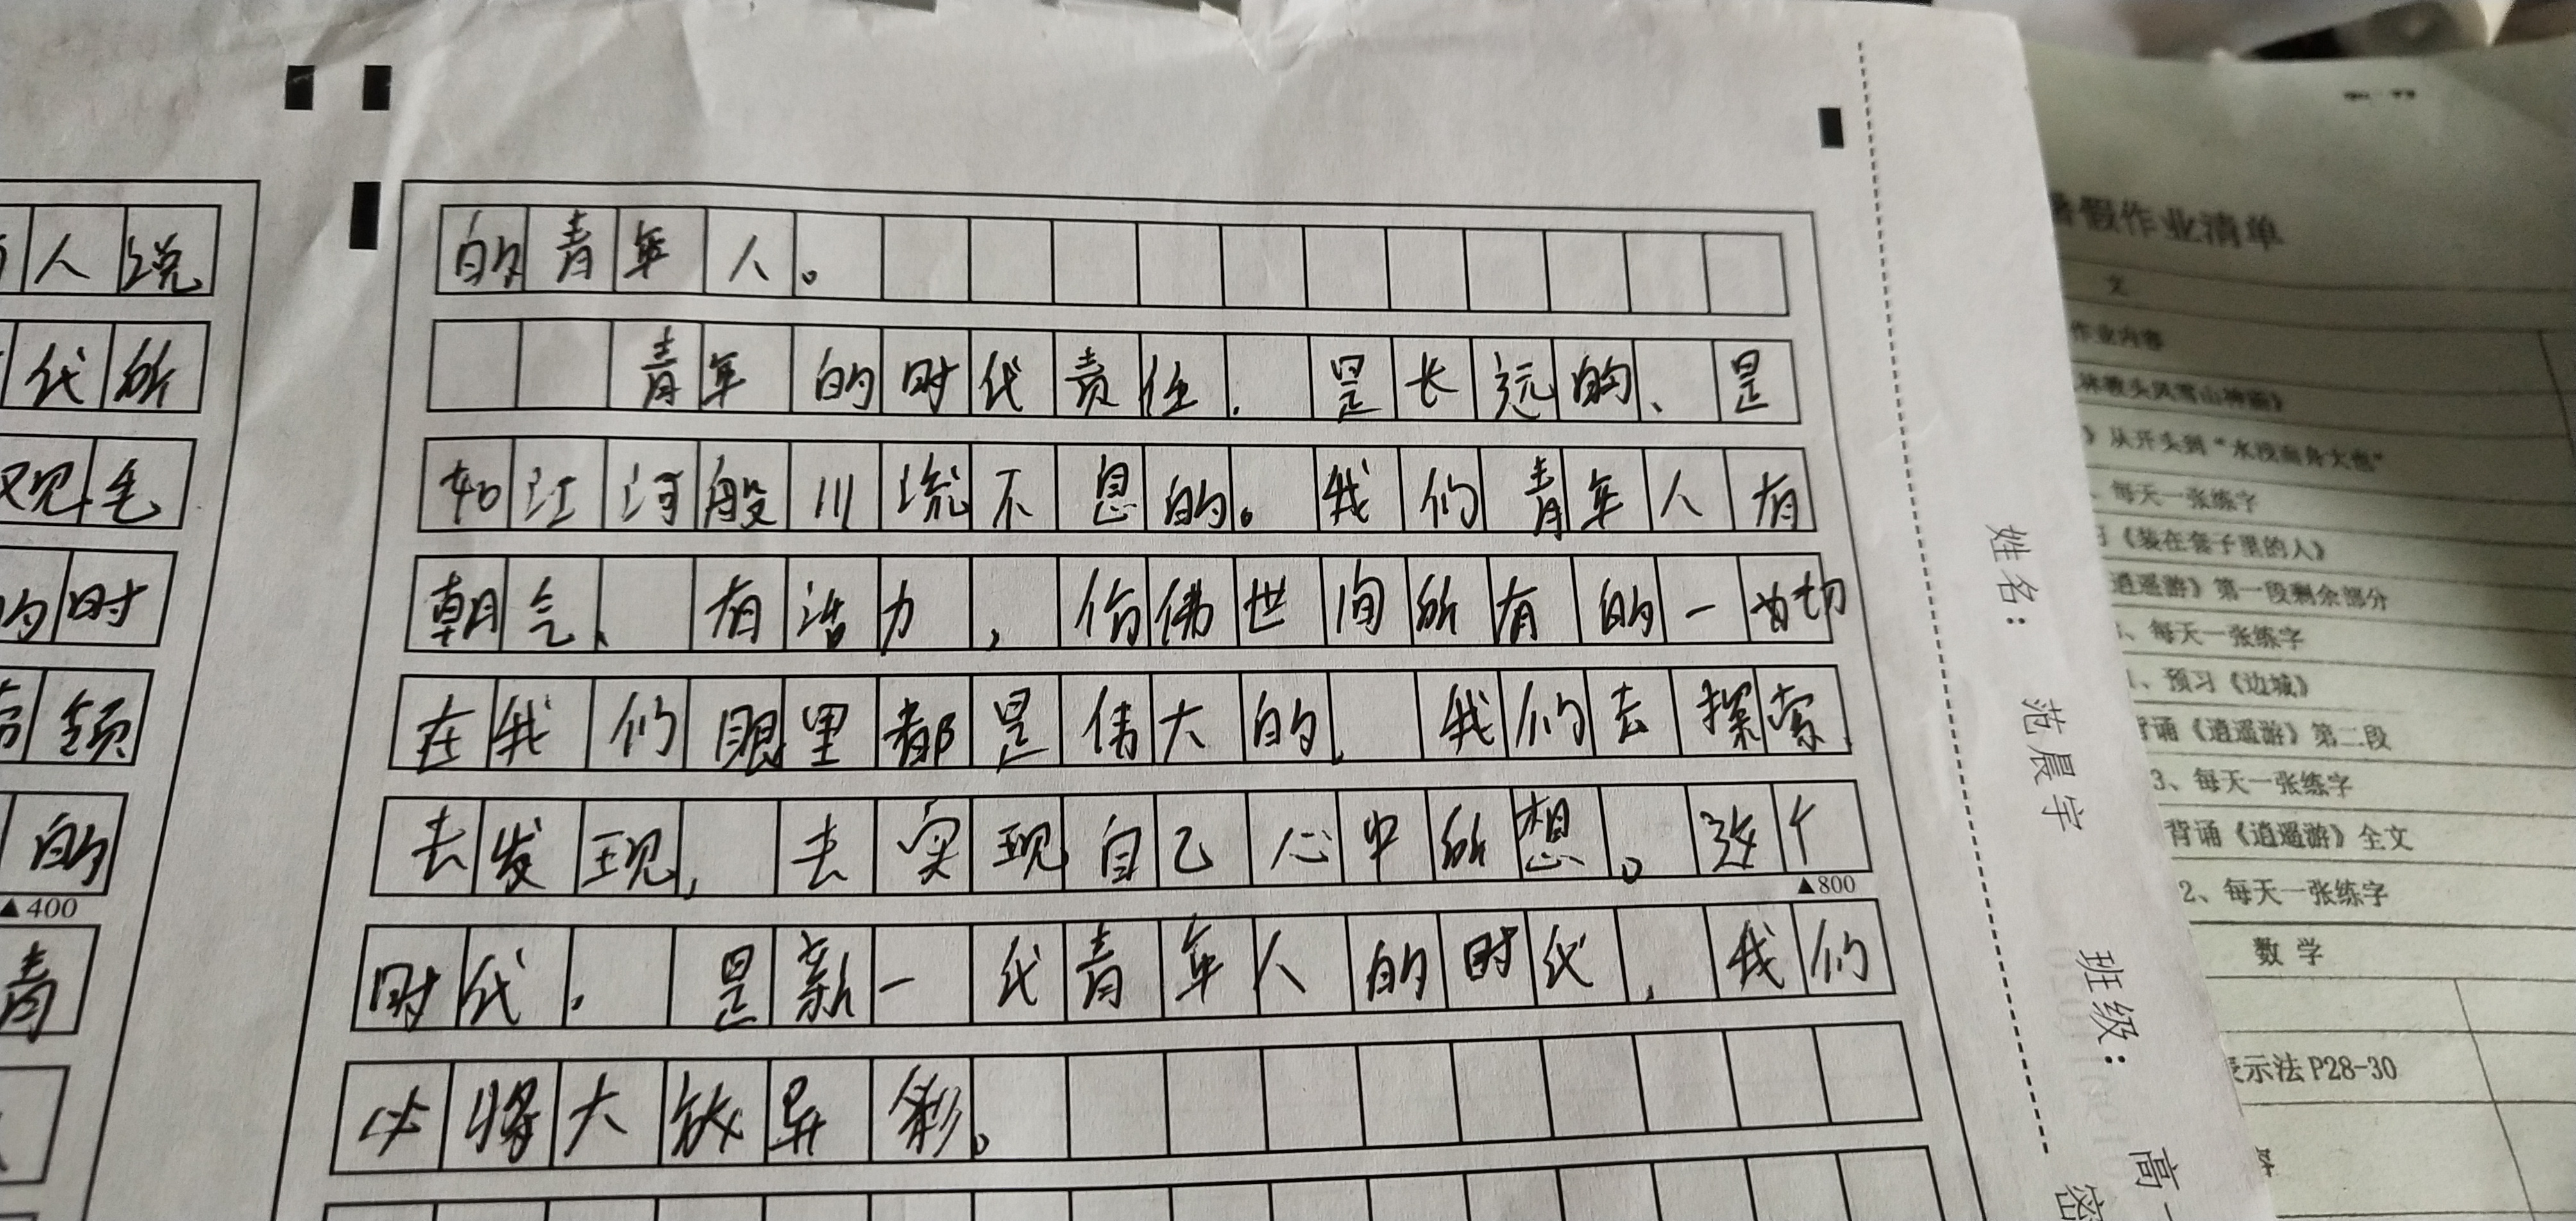 人说
代所
观毛
的时
领
的
▲400
青
的青年人。
青年的时代责任，是长远的、是
如江河般川流不息的。我们青年人有
朝气、有活力，仿佛世间所有的一切
在我们眼里都是伟大的，我们去探索，
去发现，去实现自己心中所想。这个
▲800
时代，是新一代青年人的时代，我们
必将大放异彩。
姓名：范晨宇
班级：高一
密
暑假作业清单
文
作业内容
林教头风雪山神庙》
》从开头到“水浅而舟大也”
、每天一张练字
习《装在套子里的人》
逍遥游》第一段剩余部分
、每天一张练字
1、预习《边城》
背诵《逍遥游》第二段
3、每天一张练字
背诵《逍遥游》全文
2、每天一张练字
数学
表示法P28-30